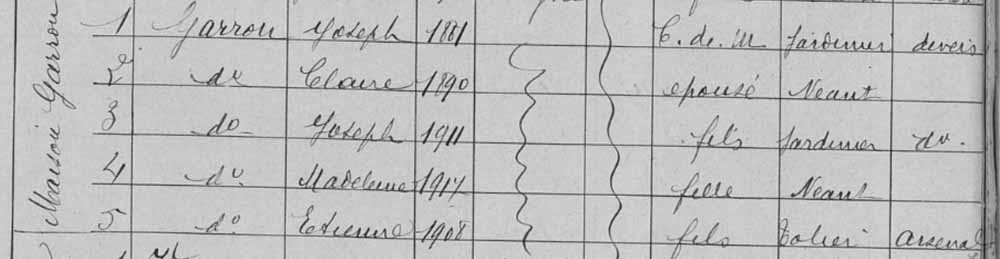 Maison Garrou
1 Garrou Joseph 1881 C. de. M Jardinier
2 do Claire 1890 epouse Neant
3 do Joseph 1911 fils Jardinier do.
4 do. Madeleine 1917 fille Neant
5 do Etienne 1908 fils Tolier Arsenal